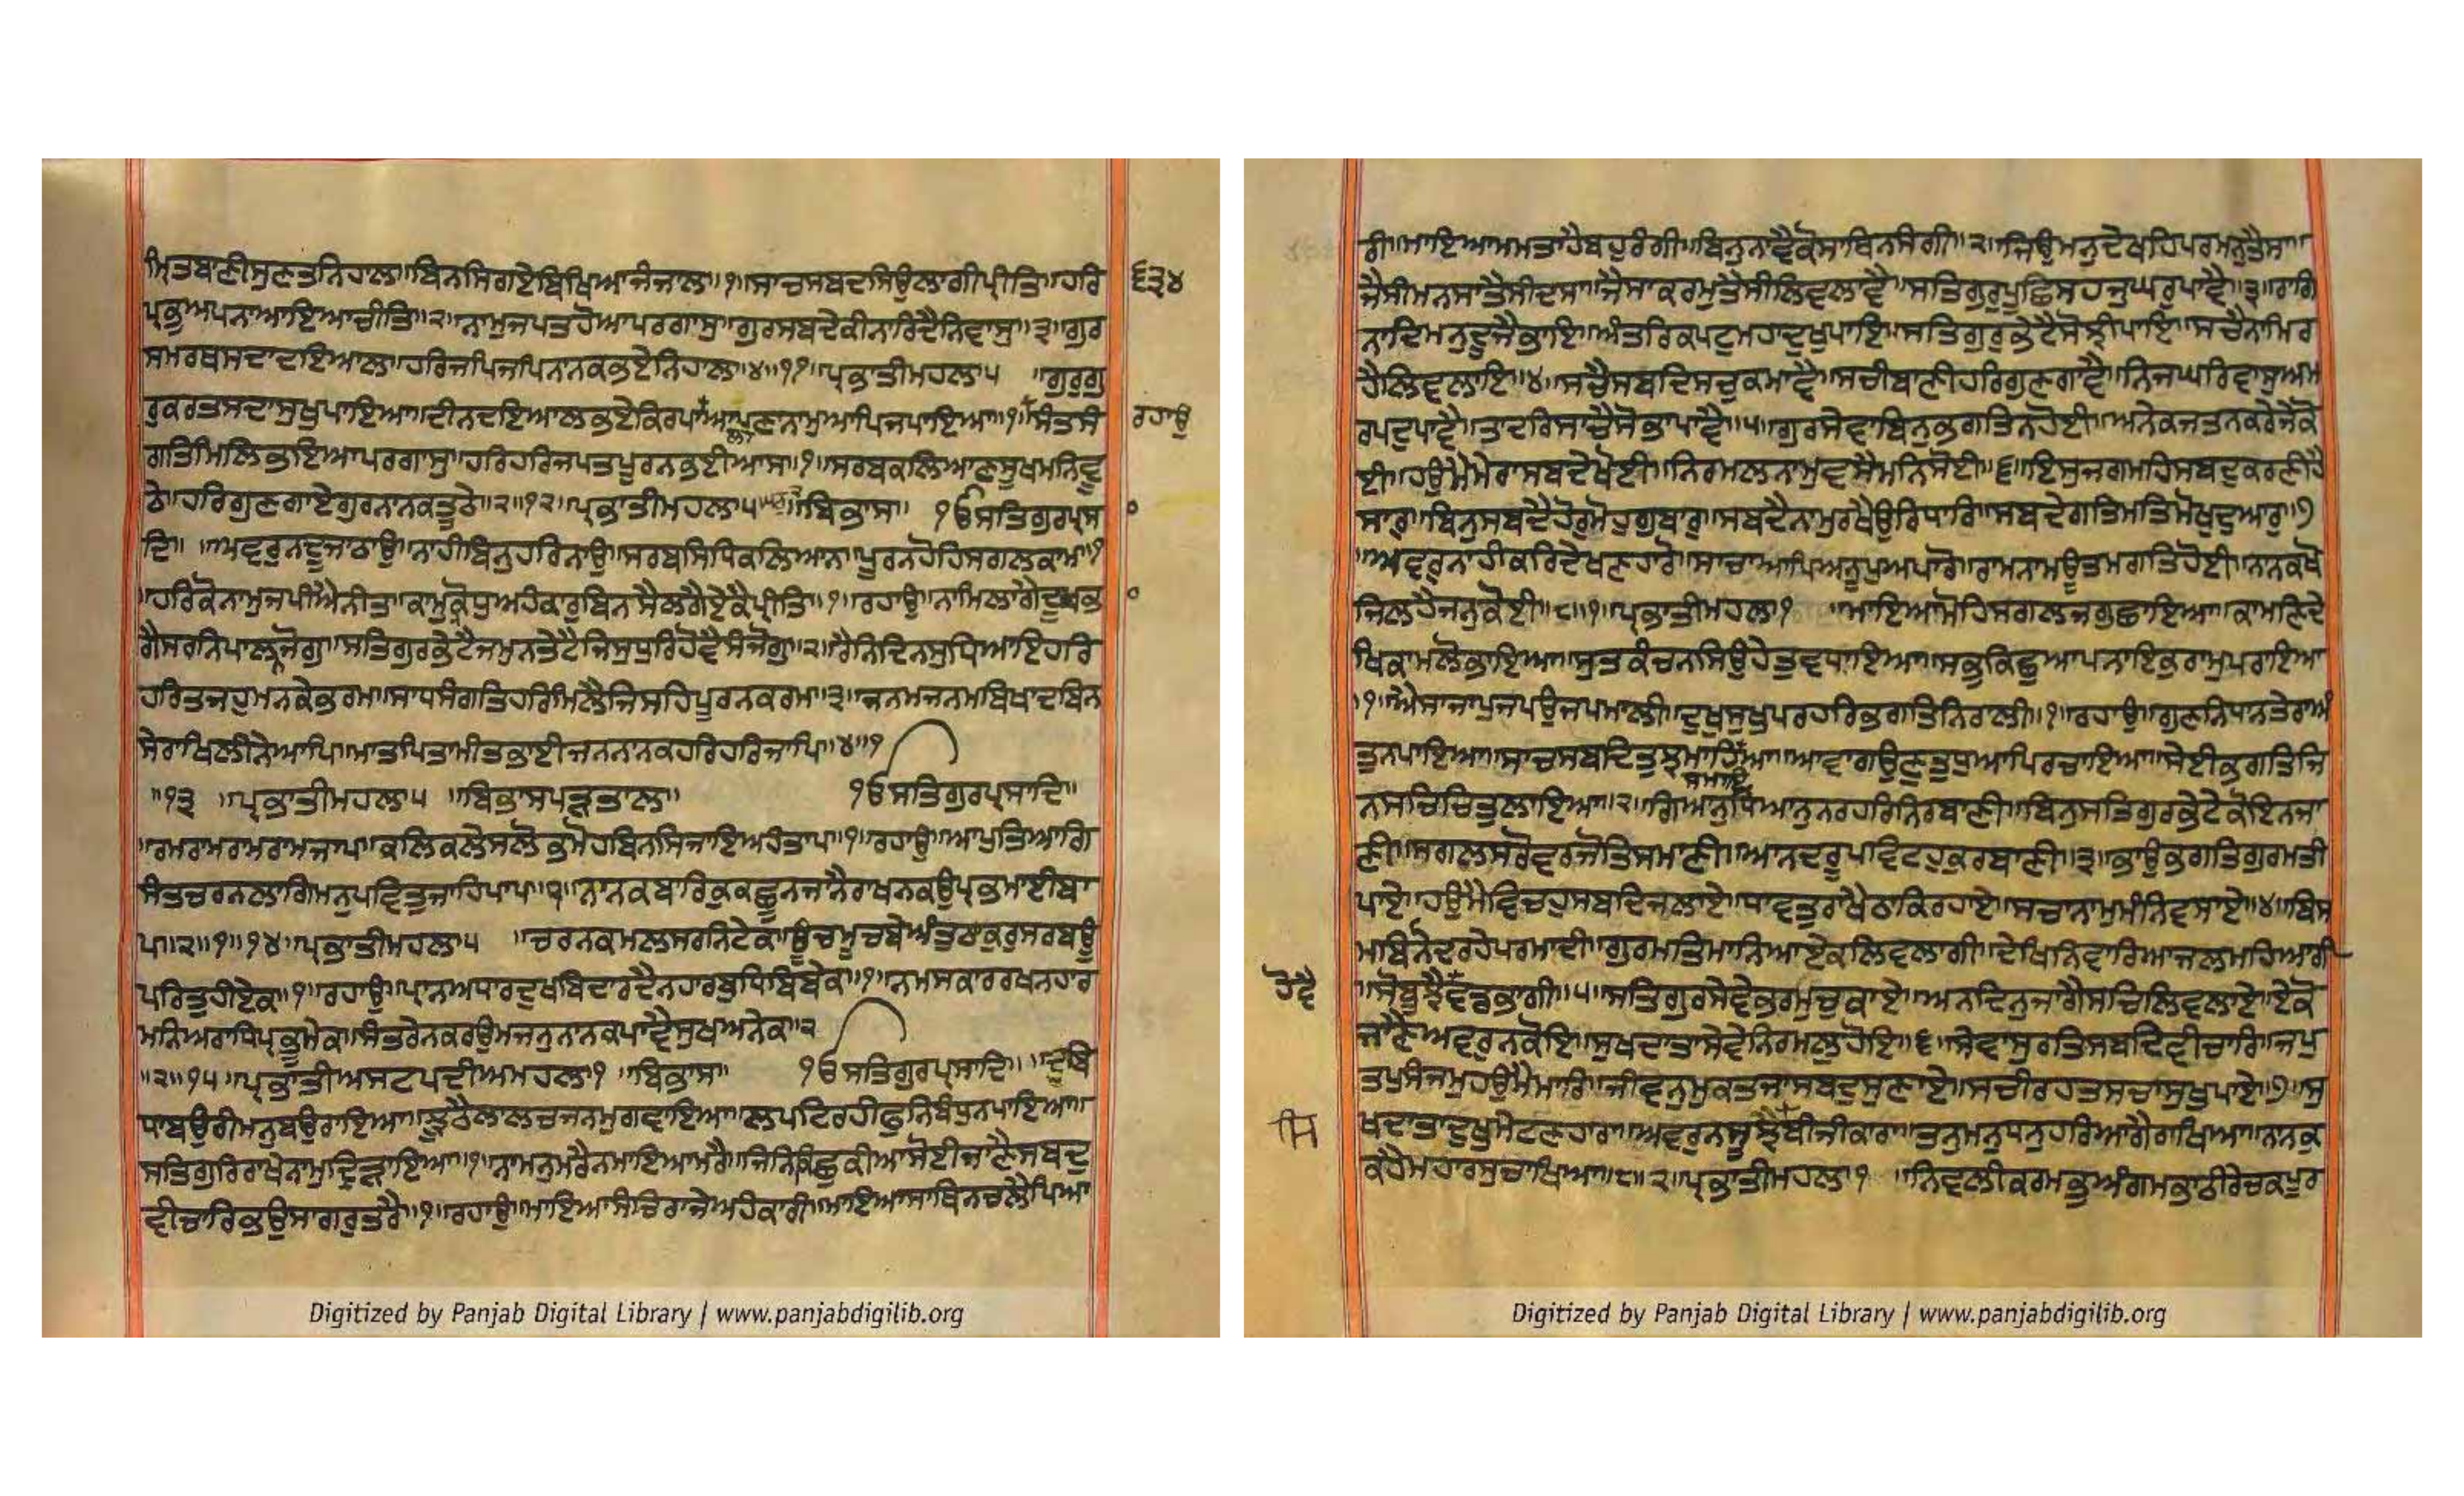 ਮ੍ਰਿਤਬਾਣੀਸੁਣਤਨਿਹਾਲਾ॥ਬਿਨਸਿਗਏਬਿਖਿਆਜੰਜਾਲਾ॥੧॥ਸਾਚਸਬਦਸਿਉਲਾਗੀਪ੍ਰੀਤਿ॥ਹਰਿ
੬੩੪
ਪ੍ਰਭੁਅਪਨਾਆਇਆਚੀਤਿ॥੨॥ਨਾਮੁਜਪਤਹੋਆਪਰਗਾਸੁ॥ਗੁਰਸਬਦੇਕੀਨਾਰਿਦੈਨਿਵਾਸੁ॥੩॥ਗੁਰ
ਸਮਰਥਸਦਾਦਇਆਲਾ॥ਹਰਿਜਪਿਜਪਿਨਾਨਕਭਏਨਿਹਾਲਾ॥੪॥੧੧॥ਪ੍ਰਭਾਤੀਮਹਲਾ੫ ॥ਗੁਰੁਗੁ
ਰੁਕਰਤਸਦਾਸੁਖੁਪਾਇਆ॥ਦੀਨਦਇਆਲਭਏਕਿਰਪਾਲਾਅਪਣਾਨਾਮੁਆਪਿਜਪਾਇਆ॥੧॥ਸੰਤਸੰ
ਰਹਾਉ
ਗਤਿਮਿਲਿਭਇਆਪਰਗਾਸੁ॥ਹਰਿਹਰਿਜਪਤਪੂਰਨਭਈਆਸ॥੧॥ਸਰਬਕਲਿਆਣਸੂਖਮਨਿਵੂ
ਠੇ॥ਹਰਿਗੁਣਗਾਏਗੁਰਨਾਨਕਤੂਠੇ॥੨॥੧੨॥ਪ੍ਰਭਾਤੀਮਹਲਾ੫ ॥ਬਿਭਾਸ॥ ੴਸਤਿਗੁਰਪ੍ਰਸਾ
ਦਿ॥ ॥ਅਵਰੁਨਦੂਜਾਠਾਉ॥ਨਾਹੀਬਿਨੁਹਰਿਨਾਉ॥ਸਰਬਸਿਧਿਕਲਿਆਨ॥ਪੂਰਨਹੋਹਿਸਗਲਕਾਮ॥੧
॥ਹਰਿਕੋਨਾਮੁਜਪੀਐਨੀਤ॥ਕਾਮਕ੍ਰੋਧਅਹੰਕਾਰੁਬਿਨਸੈਲਗੈਏਕੈਪ੍ਰੀਤਿ॥੧॥ਰਹਾਉ॥ਨਾਮਿਲਾਗੈਦੂਖੁਭਾ
ਗੈਸਰਨਿਪਾਲਨਜੋਗੁ॥ਸਤਿਗੁਰਭੇਟੈਜਮੁਨਤੇਟੈਜਿਸੁਧੁਰਿਹੋਵੈਸੰਜੋਗੁ॥੨॥ਰੈਨਿਦਿਨਸੁਧਿਆਇਹਰਿ
ਹਰਿਤਜਹੁਮਨਕੇਭਰਮ॥ਸਾਧਸੰਗਤਿਹਰਿਮਿਲੈਜਿਸਹਿਪੂਰਨਕਰਮ॥੩॥ਜਨਮਜਨਮਬਿਖਾਦਬਿਨ
ਸੇਰਾਖਿਲੀਨੇਆਪਿ॥ਮਾਤਪਿਤਾਮੀਤਭਾਈਜਨਨਾਨਕਹਰਿਹਰਿਜਾਪਿ॥੪॥੧
॥੧੩ ॥ਪ੍ਰਭਾਤੀਮਹਲਾ੫ ॥ਬਿਭਾਸਪੜਤਾਲ॥ ੴਸਤਿਗੁਰਪ੍ਰਸਾਦਿ॥
॥ਰਮਰਾਮਰਾਮਰਾਮਜਾਪ॥ਕਲਿਕਲੇਸਲੋਭਮੋਹਬਿਨਸਿਜਾਇਅਹੰਤਾਪ॥੧॥ਰਹਾਉ॥ਆਪੁਤਿਆਗਿ
ਸੰਤਚਰਨਲਾਗਿਮਨੁਪਵਿਤੁਜਾਹਿਪਾਪ॥੧॥ਨਾਨਕਬਾਰਿਕੁਕਛੂਨਜਾਨੈਰਾਖਨਕਉਪ੍ਰਭੁਮਾਈਬਾ
ਪ॥੨॥੧॥੧੪॥ਪ੍ਰਭਾਤੀਮਹਲਾ੫ ॥ਚਰਨਕਮਲਸਰਨਿਟੇਕ॥ਊਚਮੂਚਬੇਅੰਤੁਠਾਕੁਰੁਸਰਬਊ
ਪਰਿਤੁਹੀਏਕ॥੧॥ਰਹਾਉ॥ਪ੍ਰਾਨਅਧਾਰਦੁਖਬਿਦਾਰਦੈਨਹਾਰਬੁਧਿਬਿਬੇਕ॥੧॥ਨਮਸਕਾਰਰਖਨਹਾਰ
ਮਨਿਅਰਾਧਿਪ੍ਰਭੂਮੇਕ॥ਸੰਤਰੇਨਕਰਉਮਜਨੁਨਾਨਕਪਾਵੈਸੁਖਅਨੇਕ॥੨
॥੨॥੧੫॥ਪ੍ਰਭਾਤੀਅਸਟਪਦੀਆਮਹਲਾ੧ ॥ਬਿਭਾਸ॥ ੴਸਤਿਗੁਰਪ੍ਰਸਾਦਿ॥ ॥ਦੁਬਿ
ਧਾਬਉਰੀਮਨੁਬਉਰਾਇਆ॥ਝੂਠੈਲਾਲਚਜਨਮੁਗਵਾਇਆ॥ਲਪਟਿਰਹੀਫੁਨਿਬੰਧੁਨਪਾਇਆ॥
ਸਤਿਗੁਰਿਰਾਖੇਨਾਮੁਦ੍ਰਿੜਾਇਆ॥੧॥ਨਾਮਨੁਮਰੈਨਮਾਇਆਮਰੈ॥ਜਿਨਿਕਿਛੁਕੀਆਸੋਈਜਾਣੈਸਬਦੁ
ਵੀਚਾਰਿਭਉਸਾਗਰੁਤਰੈ॥੧॥ਰਹਾਉ॥ਮਾਇਆਸੰਚਿਰਾਜੇਅਹੰਕਾਰੀ॥ਮਾਇਆਸਾਥਿਨਚਲੈਪਿਆ
Digitized by Panjab Digital Library | www.panjabdigilib.org
ਰੀ॥ਮਾਇਆਮਮਤਾਹੈਬਹੁਰੰਗੀ॥ਬਿਨੁਨਾਵੈਕੋਸਾਥਿਨਸੰਗੀ॥੨॥ਜਿਉਮਨੁਦੇਖਹਿਪਰਮਨੁਤੈਸਾ॥
ਜੈਸੀਮਨਸਾਤੈਸੀਦਸਾ॥ਜੈਸਾਕਰਮੁਤੈਸੀਲਿਵਲਾਵੈ॥ਸਤਿਗੁਰੁਪੂਛਿਸਹਜਘਰੁਪਾਵੈ॥੩॥ਰਾਗਿ
ਨਾਦਿਮਨੁਦੂਜੈਭਾਇ॥ਅੰਤਰਿਕਪਟੁਮਹਾਦੁਖੁਪਾਇ॥ਸਤਿਗੁਰੁਭੇਟੈਸੋਝੀਪਾਇ॥ਸਚੈਨਾਮਿਰ
ਹੈਲਿਵਲਾਇ॥੪॥ਸਚੈਸਬਦਿਸਚੁਕਮਾਵੈ॥ਸਚੀਬਾਣੀਹਰਿਗੁਣਗਾਵੈ॥ਨਿਜਘਰਿਵਾਸੁਅਮ
ਰਪਦੁਪਾਵੈ॥ਤਾਦਰਿਸਾਚੈਸੋਭਾਪਾਵੈ॥੫॥ਗੁਰਸੇਵਾਬਿਨੁਭਗਤਿਨਹੋਈ॥ਅਨੇਕਜਤਨਕਰੇਜੇਕੋ
ਈ॥ਹਉਮੈਮੇਰਾਸਬਦੇਖੋਈ॥ਨਿਰਮਲਨਾਮੁਵਸੈਮਨਿਸੋਈ॥੬॥ਇਸੁਜਗਮਹਿਸਬਦੁਕਰਣੀਹੈ
ਸਾਰੁ॥ਬਿਨੁਸਬਦੈਹੋਰੁਮੋਹੁਗੁਬਾਰੁ॥ਸਬਦੈਨਾਮੁਰਖੈਉਰਿਧਾਰਿ॥ਸਬਦੇਗਤਿਮਤਿਮੋਖਦੁਆਰੁ॥੭
॥ਅਵਰੁਨਾਹੀਕਰਿਦੇਖਣਹਾਰੋ॥ਸਾਚਾਆਪਿਅਨੂਪੁਅਪਾਰੋ॥ਰਾਮਨਾਮਊਤਮਗਤਿਹੋਈ॥ਨਾਨਕਖੋ
ਜਿਲਹੈਜਨੁਕੋਈ॥੮॥੧॥ਪ੍ਰਭਾਤੀਮਹਲਾ੧ ॥ਮਾਇਆਮੋਹਿਸਗਲਜਗੁਛਾਇਆ॥ਕਾਮਣਿਦੇ
ਖਿਕਾਮਲੋਭਾਇਆ॥ਸੁਤਕੰਚਨਸਿਉਹੇਤੁਵਧਾਇਆ॥ਸਭੁਕਿਛੁਆਪਨਾਇਕੁਰਾਮੁਪਰਾਇਆ
॥੧॥ਐਸਾਜਾਪੁਜਪਉਜਪਮਾਲੀ॥ਦੁਖੁਸੁਖੁਪਰਹਰਿਭਗਤਿਨਿਰਾਲੀ॥੧॥ਰਹਾਉ॥ਗੁਣਨਿਧਾਨਤੇਰਾਅੰ
ਤੁਨਪਾਇਆ॥ਸਾਚਸਬਦਿਤੁਝਮਾਹਿਸਮਾਇਆ॥ਆਵਾਗਉਣੁਤੁਧੁਆਪਿਰਚਾਇਆ॥ਸੇਈਭਗਤਿਜਿ
ਨਸਚਿਚਿਤੁਲਾਇਆ॥੨॥ਗਿਆਨੁਧਿਆਨੁਨਰਹਰਿਨਿਰਬਾਣੀ॥ਬਿਨੁਸਤਿਗੁਰਭੇਟੇਕੋਇਨਜਾ
ਣੀ॥ਸਗਲਸਰੋਵਰਜੋਤਿਸਮਾਣੀ॥ਆਨਦਰੂਪਵਿਟਹੁਕੁਰਬਾਣੀ॥੩॥ਭਾਉਭਗਤਿਗੁਰਮਤੀ
ਪਾਏ॥ਹਉਮੈਵਿਚਹੁਸਬਦਿਜਲਾਏ॥ਧਾਵਤੁਰਾਖੈਠਾਕਿਰਹਾਏ॥ਸਚਾਨਾਮੁਮੰਨਿਵਸਾਏ॥੪॥ਬਿਸ
ਮਬਿਨੋਦਰਹੇਪਰਮਾਦੀ॥ਗੁਰਮਤਿਮਾਨਿਆਏਕਲਿਵਲਾਗੀ॥ਦੇਖਿਨਿਵਾਰਿਆਜਲਮਹਿਆਗੀ
ਹੋਵੈ
॥ਸੋਬੂਝੈਵਡਭਾਗੀ॥੫॥ਸਤਿਗੁਰਸੇਵੇਭਰਮੁਚੁਕਾਏ॥ਅਨਦਿਨੁਜਾਗੈਸਚਿਲਿਵਲਾਏ॥ਏਕੋ
ਜਾਣੈਅਵਰੁਨਕੋਇ॥ਸੁਖਦਾਤਾਸੇਵੇਨਿਰਮਲੁਹੋਇ॥੬॥ਸੇਵਾਸੁਰਤਿਸਬਦਿਵੀਚਾਰਿ॥ਜਪੁ
ਤਪੁਸੰਜਮੁਹਉਮੈਮਾਰਿ॥ਜੀਵਨਮੁਕਤੁਜਾਸਬਦੁਸੁਣਾਏ॥ਸਚੀਰਹਤਸਚਾਸੁਖੁਪਾਏ॥੭॥ਸੁ
ਖਦਾਤਾਦੁਖੁਮੇਟਣਹਾਰਾ॥ਅਵਰੁਨਸੂਝੈਬੀਜੀਕਾਰਾ॥ਤਨੁਮਨੁਧਨੁਹਰਿਆਗੈਰਾਖਿਆ॥ਨਾਨਕੁ
ਕਹੈਮਹਾਰਸੁਚਾਖਿਆ॥੮॥੨॥ਪ੍ਰਭਾਤੀਮਹਲਾ੧ ॥ਨਿਵਲੀਕਰਮਭੁਅੰਗਮਭਾਠੀਰੇਚਕਪੂਰ
Digitized by Panjab Digital Library | www.panjabdigilib.org